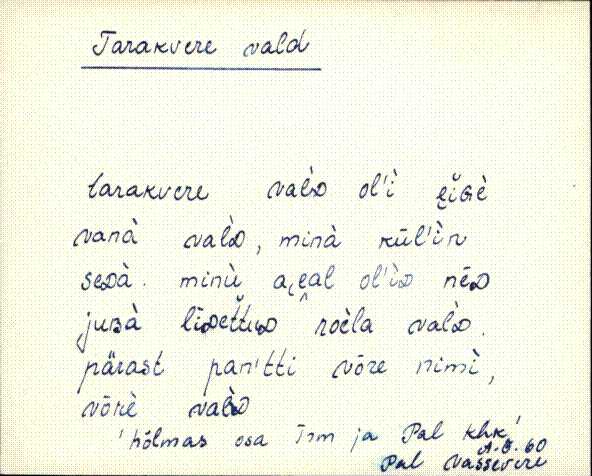 Tarakvere vald
tarakvere valᴅ̀ ol'ì ę̆iɢè
vanà valᴅ̀, minà kūl'ìn
seᴅà. minù a̯ęal ol'ìᴅ nēᴅ
juʙà līᴅeťtuᴅ roèla valᴅ̀.
pärast pan'tti võre nimì,
võrè valᴅ̀
'hõlmas osa Trm ja Pal khk'
A.U. 60
Pal Vassevere